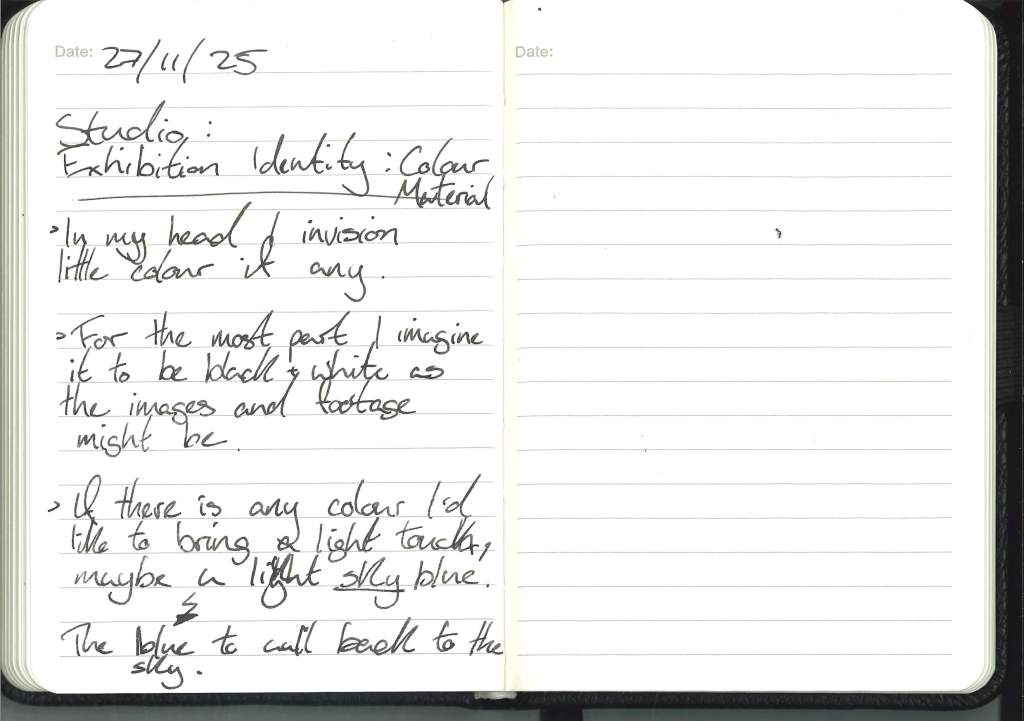 Date: 27/11/25
Date:
Studio:
Exhibition Identity: Colour
Material
> In my head I invision
little colour if any.
> For the most part I imagine
it to be black & white as
the images and footage
might be.
> If there is any colour I'd
like to bring a light touch,
maybe a light sky blue.
The blue to call back to the
sky.